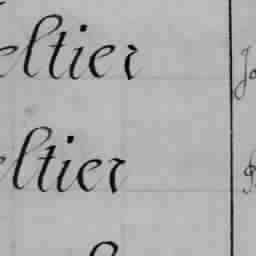 eltier
eltier